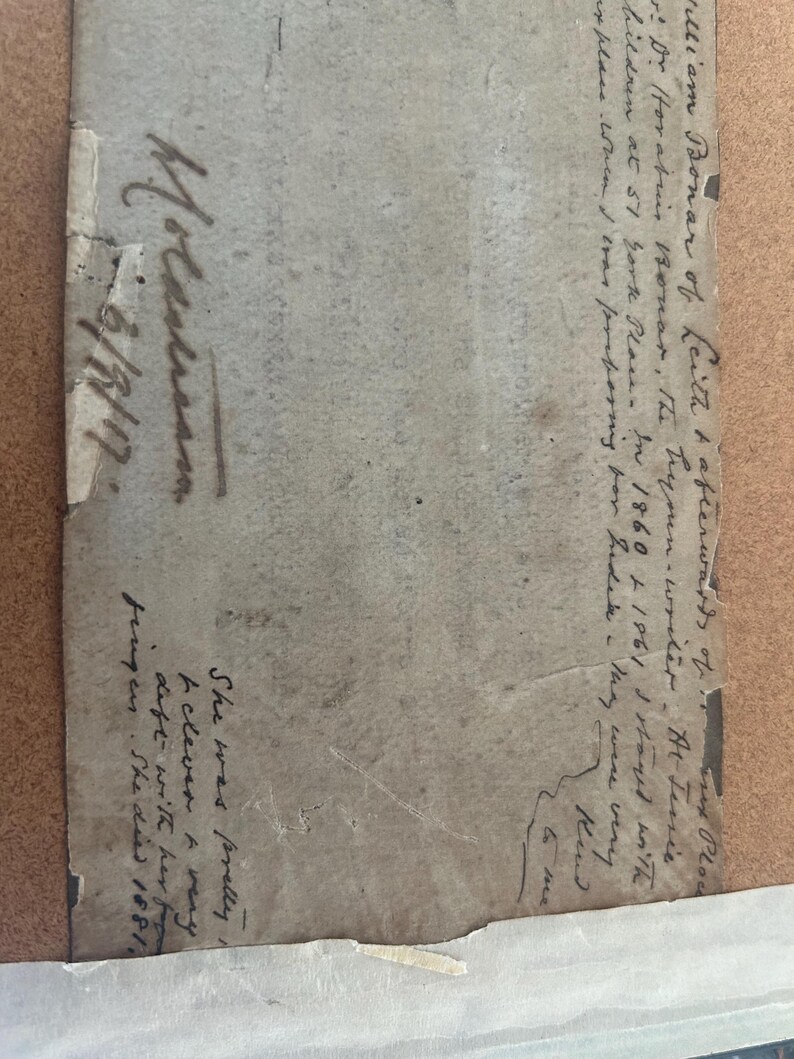 illiam Bonar of Leith & afterwards of York Place
r: Dr Horatius Bonar, the hymn-writer. At
hildren at 51 York Place. In 1860 & 1861 I stayed with
place when I was preparing for India - they were very
kind
to me
She was pretty,
& clever & very
deft with her
fingers. She died 1881.
Coldstream
/17.